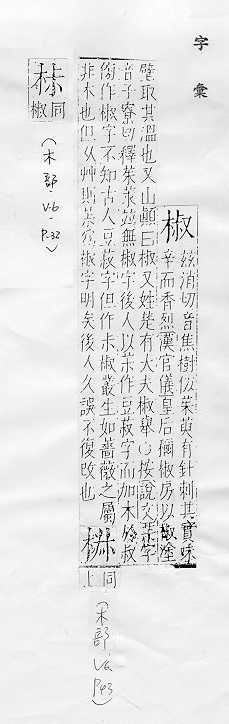 字彙
椒
茲消切音焦樹似茱萸有針刺其實味
辛而香烈漢官儀皇后稱椒房以椒塗
壁取其溫也又山巔曰椒又姓楚有大夫椒舉○按說文茮字
音子寮切釋茱莍並無椒字後人以尗作豆菽字而加木於叔
傍作椒字不知古人豆菽字但作尗椒叢生如薔薇之屬
非木也但从艸則茮為椒字明矣後人久誤不復改也
同上
(木部 V.6 P.43)
同椒
(木部・V.6・P.32)